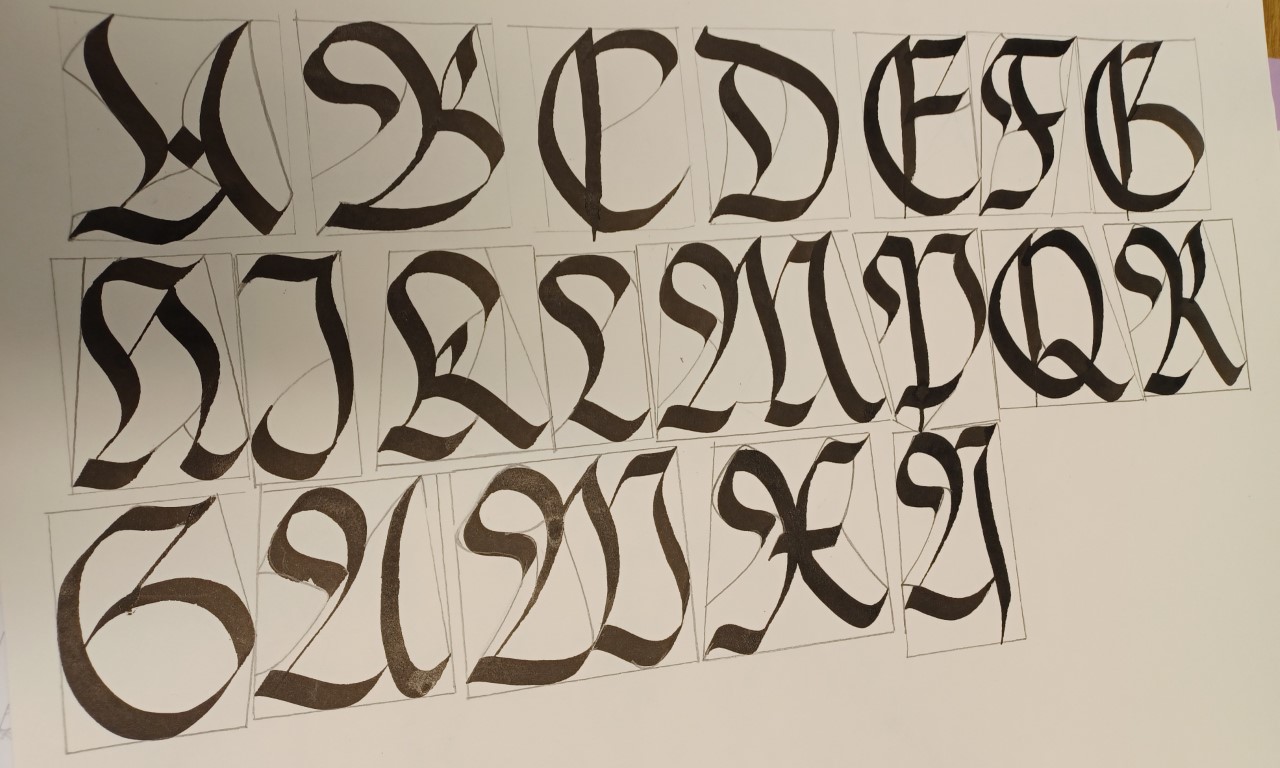 A B C D E F G
H I K L M P Q R
S U W X Y